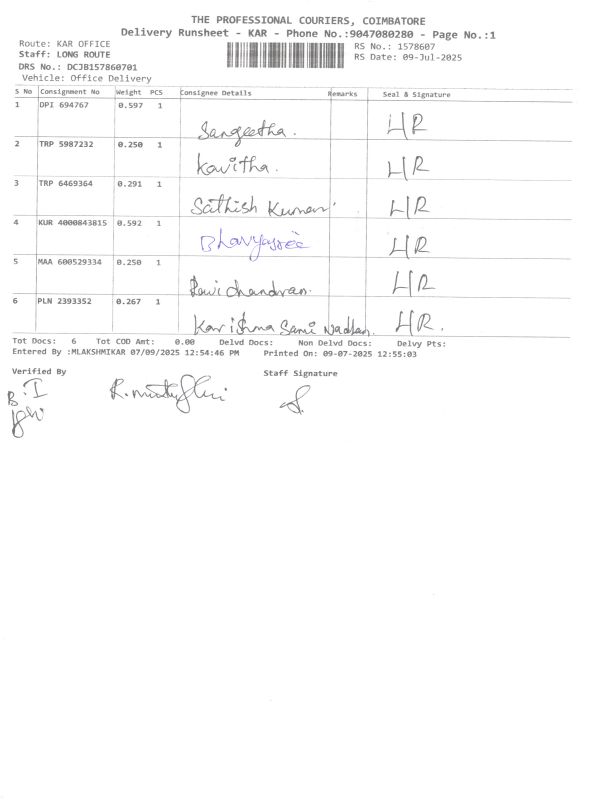 THE PROFESSIONAL COURIERS, COIMBATORE
Delivery Runsheet - KAR - Phone No.:9047080280 - Page No.:1
Route: KAR OFFICE
RS No.: 1578607
Staff: LONG ROUTE
RS Date: 09-Jul-2025
DRS No.: DCJB157860701
Vehicle: Office Delivery
S No Consignment No Weight PCS Consignee Details Remarks Seal & Signature
1 DPI 694767 0.597 1 Sangeetha. HR
2 TRP 5987232 0.250 1 Kavitha. HR
3 TRP 6469364 0.291 1 Sathish Kumar HR
4 KUR 4000843815 0.592 1 Bhavyasree HR
5 MAA 600529334 0.250 1 Ravichandran. HR
6 PLN 2393352 0.267 1 Karishma Sami Nadhan. HR.
Tot Docs: 6 Tot COD Amt: 0.00 Delvd Docs: Non Delvd Docs: Delvy Pts:
Entered By :MLAKSHMIKAR 07/09/2025 12:54:46 PM Printed On: 09-07-2025 12:55:03
Verified By
Staff Signature
B.I